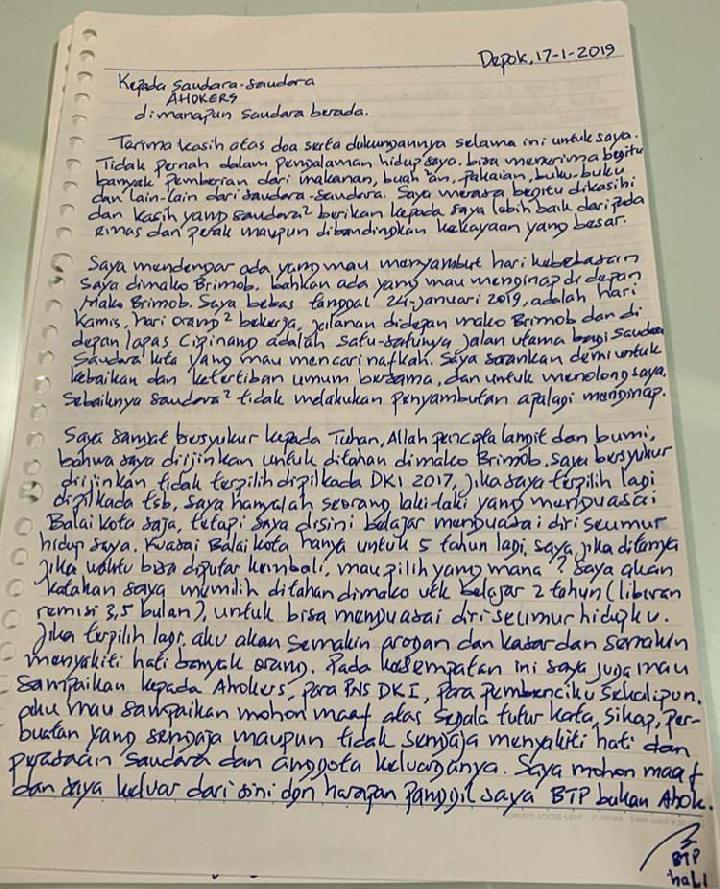 Depok, 17-1-2019
Kepada Saudara-saudara
AHOKERS
dimanapun Saudara berada.
Tarima kasih atas doa serta dukungannya selama ini untuk saya.
Tidak pernah dalam pengalaman hidup saya. bisa menerima begitu
banyak pemberian dari makanan, buah²an, pakaian, buku-buku
dan lain-lain dari saudara-saudara. Saya merasa begitu dikasihi
dan kasih yang saudara² berikan kepada saya lebih baik daripada
Emas dan perak maupun dibandingkan kekayaan yang besar.
Saya mendengar ada yang mau menyambut hari kebebasan
saya dimako Brimob. bahkan ada yang mau menginap di depan
Mako Brimob. Saya bebas tanggal 24-januari 2019, adalah hari
Kamis, hari orang² bekerja, jalanan didepan mako Brimob dan di
depan lapas Cipinang adalah satu-satunya jalan utama bagi saudara
Saudara kita yang mau mencari nafkah. Saya sarankan demi untuk
kebaikan dan ketertiban umum bersama, dan untuk menolong saya,
Sebaiknya saudara² tidak melakukan penyambutan apalagi menginap.
Saya sangat bersyukur kepada Tuhan, Allah pencipta langit dan bumi,
bahwa saya diijinkan untuk ditahan dimako Brimob. saya bersyukur
diijinkan tidak terpilih dipilkada DKI 2017, jika saya terpilih lagi
dipilkada tsb, saya hanyalah seorang laki-laki yang menguasai
Balai kota saja, tetapi saya disini belajar menguasai diri seumur
hidup saya. Kuasai Balai kota hanya untuk 5 tahun lagi, saya jika ditanya
jika waktu bisa diputar kembali, mau pilih yang mana? saya akan
katakan saya memilih ditahan dimako utk belajar 2 tahun (liburan
remisi 3,5 bulan), untuk bisa menguasai diri seumur hidupku.
Jika terpilih lagi, aku akan semakin arogan dan kasar dan semakin
menyakiti hati banyak orang. Pada kesempatan ini saya juga mau
sampaikan kepada Ahokers, para PNS DKI, para pembenciku sekalipun,
aku mau sampaikan mohon maaf atas segala tutur kata, sikap, per-
buatan yang sengaja maupun tidak sengaja menyakiti hati dan
perasaan saudara dan anggota keluarganya. Saya mohon maaf
dan saya keluar dari sini dgn harapan panggil saya BTP bukan Ahok.
BTP